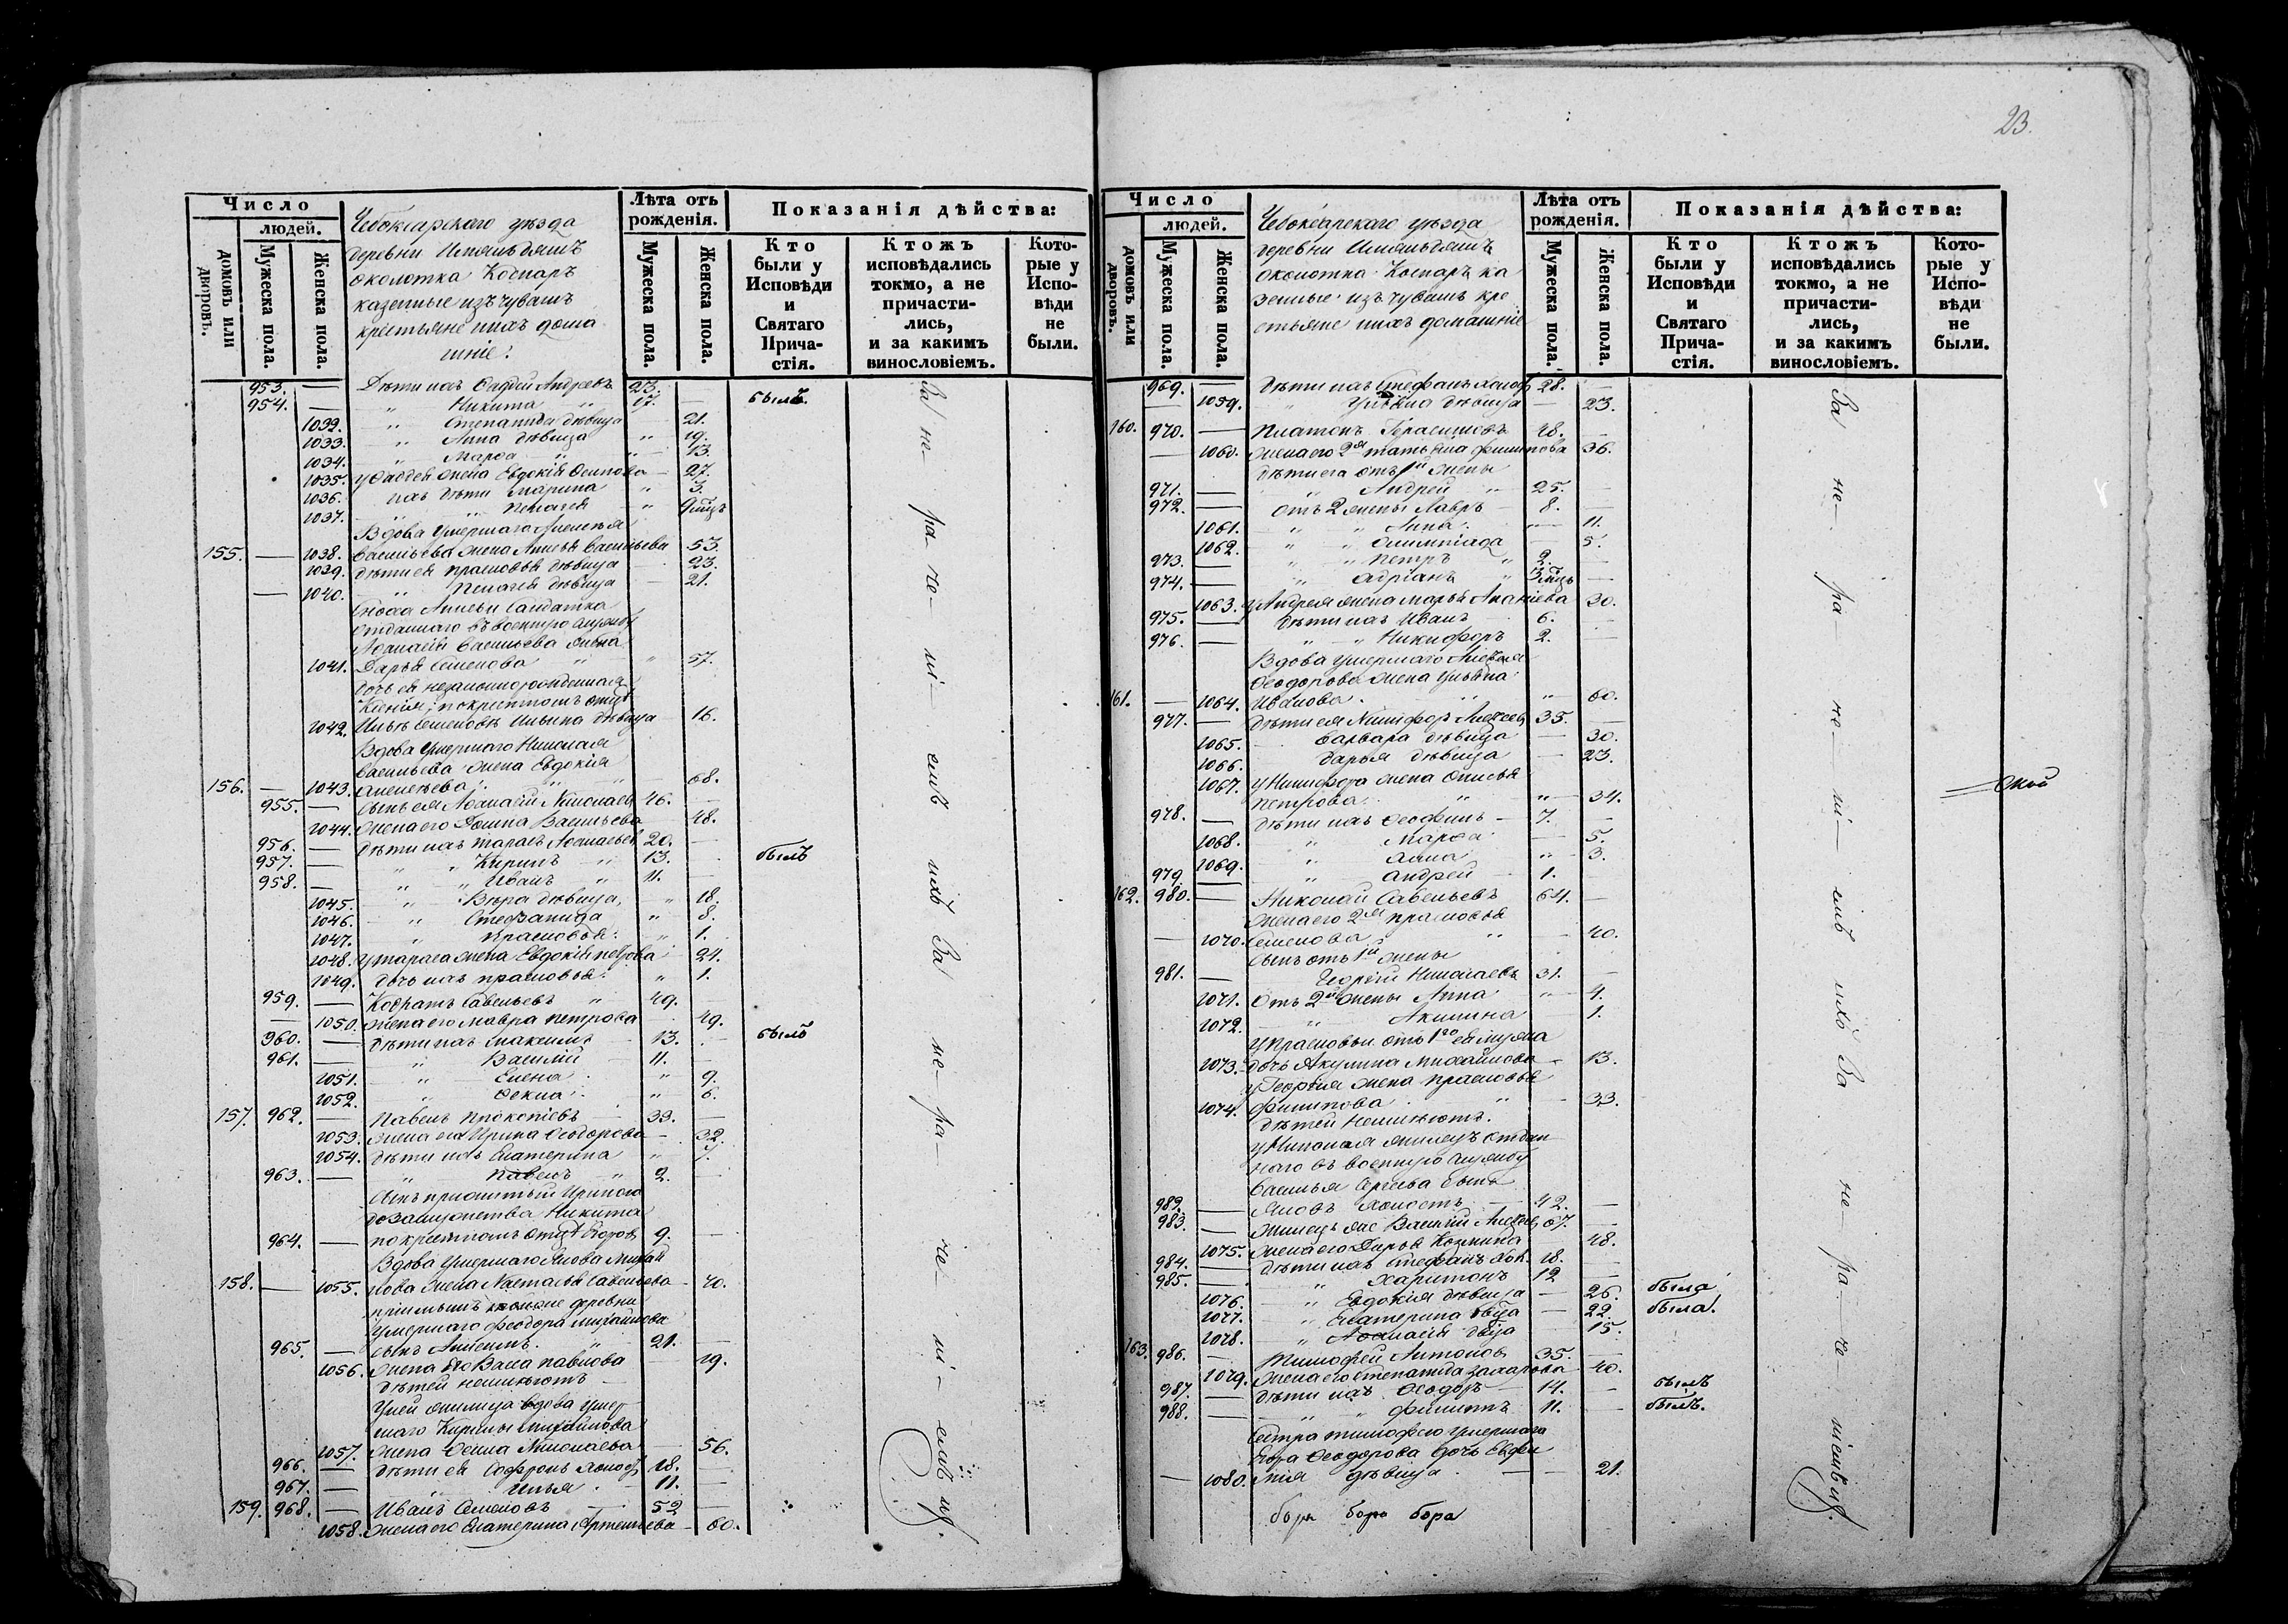 Число
людей.
домовъ или дворовъ.
Мужеска пола.
Женска пола.
Чебоксарскаго уѣзда
деревни Ишлыъдяшъ
околотка Коснаръ
казенные изъ чувашъ
крестьяне ихъ дома
шніе.
Лѣта отъ рожденія.
Мужеска пола.
Женска пола.
Показанія дѣйства:
Кто были у Исповѣди и Святаго Причастія.
Ктожъ исповѣдались токмо, а не причастились, и за какимъ винословіемъ.
Которые у Исповѣди не были.
953. — Дѣти ихъ Фаддей Андреевъ 23. —
954. — " Никита " 17. — былъ.
1032. " Степанида дѣвица — 21.
1033. " Анна дѣвица " 19.
1034. " Марѳа " " 13.
1035. у Фаддея жена Евдокія Осипова — 27.
1036. ихъ дѣти Марина " 3.
1037. " Пелагея — " 9 мцъ
Вдова умершаго Алексѣя
155. — 1038. Васильева жена Анисья Васильева 53.
1039. дѣти ея Прасковья дѣвица — 23.
— 1040. " Пелагея дѣвица — 21.
Сноха Анисьи Салдатка
отданнаго въ военную службу
Аѳанасія Васильева жена
1041. Дарья Семенова " " 57.
дочь ея незаконнорожденная
Ксенія, по крестномъ отцѣ
1042. Ильѣ Семеновѣ Ильина дѣвица — 16.
Вдова умершаго Николая
Васильева жена Евдокія
156. — 1043. Алексѣева. " " — 68.
955. — сынъ ея Аѳанасій Николаевъ 46. —
1044. жена его Ѳекла Васильева — 48.
956. — дѣти ихъ Тарасъ Аѳанасьевъ 20. —
957. — " Кирилъ " 13. — былъ
958. — " Иванъ " 11. —
1045. " Вѣра дѣвица, — " 18.
1046. " Стефанида " 8.
1047. " Прасковья. " 1.
1048. у Тараса жена Евдокія Петрова 24.
1049. дочь ихъ Прасковья. " 1.
959. — Кодратъ Савельевъ " 49. —
— 1050. жена его Мавра Петрова — 49.
960. — дѣти ихъ Максимъ — 13. — былъ
961. — " Василій — 11. —
1051. " Елена. " 9.
1052. " Ѳекла. " 6.
157. 962. — Павелъ Прокопіевъ — 33. —
1053. жена его Ирина Ѳеодорова — 32.
1054. дѣти ихъ Екатерина " 7.
963. — " Павелъ " 2. —
Сынъ прижитый Ириною
до замужества Никита
964. — по крестномъ отцѣ Егоровъ 9. —
Вдова умершаго Якова Михай
158. — 1055. лова жена Настасья Савельева — 40.
пріемышъ изъ оной же деревни
умершаго Ѳеодора Михайлова
965. — сынъ Алексѣй. " 21. —
1056. жена его Васса Павлова — 19.
дѣтей неимѣютъ —
у ней жилица вдова умер
шаго Кирилы Михайлова
1057. жена Ѳекла Николаева — 56.
966. — дѣти ея Софронъ холост. 18. —
967. — " Илья. — 11. —
159. 968. — Иванъ Семеновъ — 52 —
1058. жена его Екатерина Артемьева — 60.
За не ра че ні емъ ихъ За не ра че ні емъ ихъ.
23.
Число
людей.
домовъ или дворовъ.
Мужеска пола.
Женска пола.
Чебоксарскаго уѣзда
деревни Ишлыъдяшъ
околотка Коснаръ ка
зенные изъ чувашъ кре
стьяне ихъ домашніе
Лѣта отъ рожденія.
Мужеска пола.
Женска пола.
Показанія дѣйства:
Кто были у Исповѣди и Святаго Причастія.
Ктожъ исповѣдались токмо, а не причастились, и за какимъ винословіемъ.
Которые у Исповѣди не были.
969. — дѣти ихъ Стефанъ холост 28. —
— 1059. " Ульяна дѣвица — 23.
160. 970. — Платонъ Герасимовъ 48. —
— 1060. жена его 2я Татьяна Филипова 36.
дѣти его отъ 1й жены
971. — " Андрей " 25. —
972. — отъ 2 жены Лавръ — 8. —
1061. " Анна. " — 11.
1062. " Олимпіада — 5.
973. — " Петръ " 2. —
974. — " Адріанъ " 3 мцъ —
1063. у Андрея жена Марья Ананіева 30.
975. — дѣти ихъ Иванъ 6. —
976. — " Никифоръ 2. —
Вдова умершаго Алексѣя
Ѳеодорова жена Ульяна
161. — 1064. Иванова. " " — 60.
977. — дѣти ея Никифоръ Алексѣевъ 35. —
1065. Варвара дѣвица — 30.
1066. Дарья дѣвица — 23.
1067. у Никифора жена Анисья
Петрова. " " — 34.
978. — дѣти ихъ Ѳеофилъ — 7. —
1068. " Марѳа. — 5.
1069. " Анна " — 3.
979 — " Андрей — 1. —
162. 980. — Николай Савельевъ 64. —
жена его 2я Прасковья
— 1070. Семенова " — 40.
сынъ отъ 1й жены
981. — Георгій Николаевъ 31. —
1071. отъ 2й жены Анна " — 4.
1072. " Акилина — 1.
у Прасковьи отъ 1го ея мужа
1073. дочь Акулина Михайлова — 13.
у Георгія жена Прасковья
1074. Филипова. " — 33.
дѣтей неимѣютъ.
у Николая жилецъ отдан
наго въ военную службу
Василья Сергѣева сынъ
982. — Яковъ холостъ — 42. —
983. — жилецъ же Василій Алексѣевъ 67. —
1075. жена его Дарья Козмина — 48.
984. — дѣти ихъ Стефанъ хол. 18. —
985. — " Харитонъ 12 —
1076. " Евдокія дѣвица — 26. была
1077. " Екатерина дѣвца — 22. была.
1078. " Аѳанасія двца — 15.
163. 986. — Тимофей Антоновъ 35. —
1079. жена его Степанида Захарова — 40.
987. — дѣти ихъ Ѳеодоръ — 14. — былъ
988. — " Филиппъ 11. — былъ.
Сестра Тимофею умершаго
Егора Ѳеодорова дочь Евфи
— 1080. мія дѣвица. — — 21.
бора бора бора
За не ра че ні емъ ихъ За не ра че ніемъ ихъ.